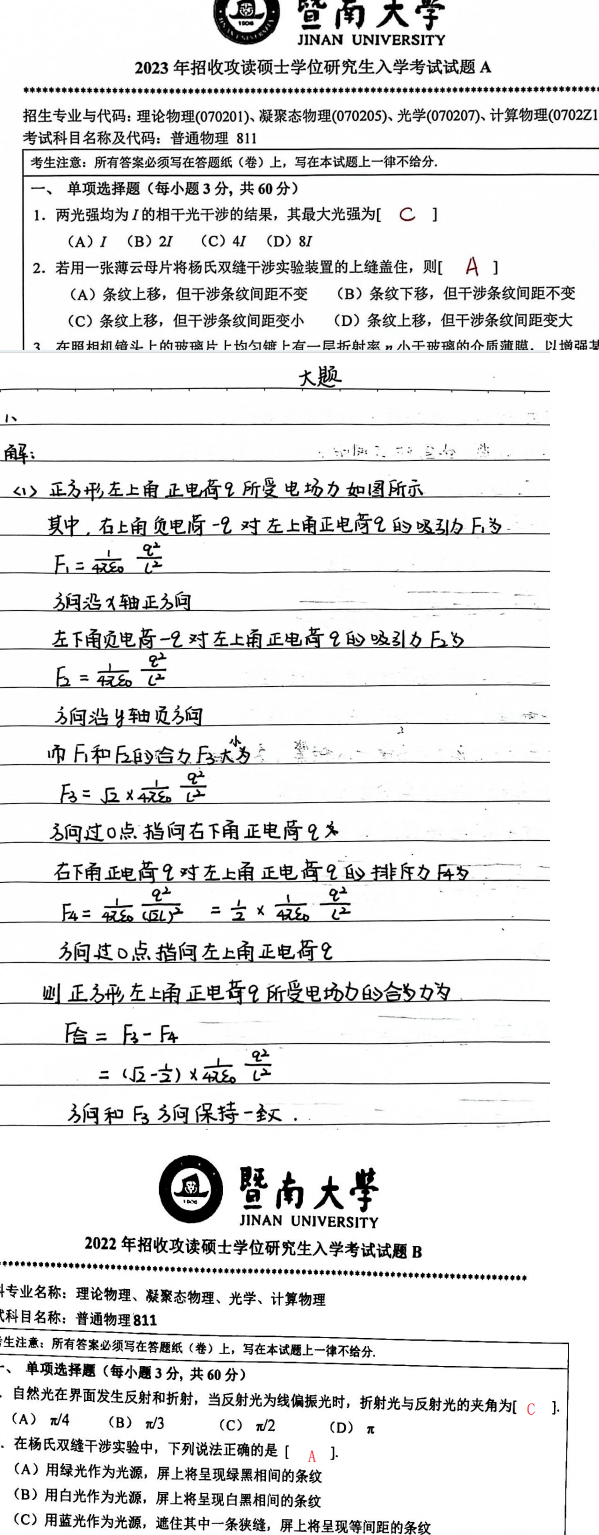 暨南大学
JINAN UNIVERSITY
2023 年招收攻读硕士学位研究生入学考试试题 A
招生专业与代码：理论物理(070201)、凝聚态物理(070205)、光学(070207)、计算物理(0702Z1
考试科目名称及代码：普通物理 811
考生注意：所有答案必须写在答题纸（卷）上，写在本试题上一律不给分.
一、 单项选择题（每小题 3 分, 共 60 分）
1. 两光强均为 I 的相干光干涉的结果，其最大光强为[ C ]
（A）I （B）2I （C）4I （D）8I
2. 若用一张薄云母片将杨氏双缝干涉实验装置的上缝盖住，则[ A ]
（A）条纹上移，但干涉条纹间距不变 （B）条纹下移，但干涉条纹间距不变
（C）条纹上移，但干涉条纹间距变小 （D）条纹上移，但干涉条纹间距变大
3. 在照相机镜头上的玻璃片上均匀镀上有一层折射率 n 小于玻璃的介质薄膜，以增强某
大题
1、
解：
<1> 正方形左上角正电荷q所受电场力如图所示
其中，右上角负电荷-q对左上角正电荷q的吸引力F₁为
F₁ = 1/4πε₀ q²/L²
方向沿x轴正方向
左下角负电荷-q对左上角正电荷q的吸引力F₂为
F₂ = 1/4πε₀ q²/L²
方向沿y轴负方向
而F₁和F₂的合力F₃大小为
F₃ = √2 × 1/4πε₀ q²/L²
方向过O点指向右下角正电荷q
右下角正电荷q对左上角正电荷q的排斥力F₄为
F₄ = 1/4πε₀ q²/(√2L)² = 1/2 × 1/4πε₀ q²/L²
方向过O点指向左上角正电荷q
则正方形左上角正电荷q所受电场力的合力为
F合 = F₃ - F₄
= (√2 - 1/2) × 1/4πε₀ q²/L²
方向和F₃方向保持一致.
暨南大学
JINAN UNIVERSITY
2022 年招收攻读硕士学位研究生入学考试试题 B
科专业名称：理论物理、凝聚态物理、光学、计算物理
试科目名称：普通物理811
考生注意：所有答案必须写在答题纸（卷）上，写在本试题上一律不给分.
一、 单项选择题（每小题 3 分, 共 60 分）
. 自然光在界面发生反射和折射，当反射光为线偏振光时，折射光与反射光的夹角为[ C ].
（A） π/4 （B） π/3 （C） π/2 （D） π
. 在杨氏双缝干涉实验中，下列说法正确的是 [ A ].
（A）用绿光作为光源，屏上将呈现绿黑相间的条纹
（B）用白光作为光源，屏上将呈现白黑相间的条纹
（C）用蓝光作为光源，遮住其中一条狭缝，屏上将呈现等间距的条纹